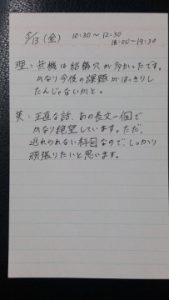 5/13 (金) 10:30〜12:30
18:00〜19:30
理:苦機は結構穴が分かったです。
かなり今後の課題がはっきりし
たんじゃないかと。
英:正直な話、あの長文一個で
かなり絶望しています。ただ、
逃れられない科目なので、しっかり
頑張りたいと思います。